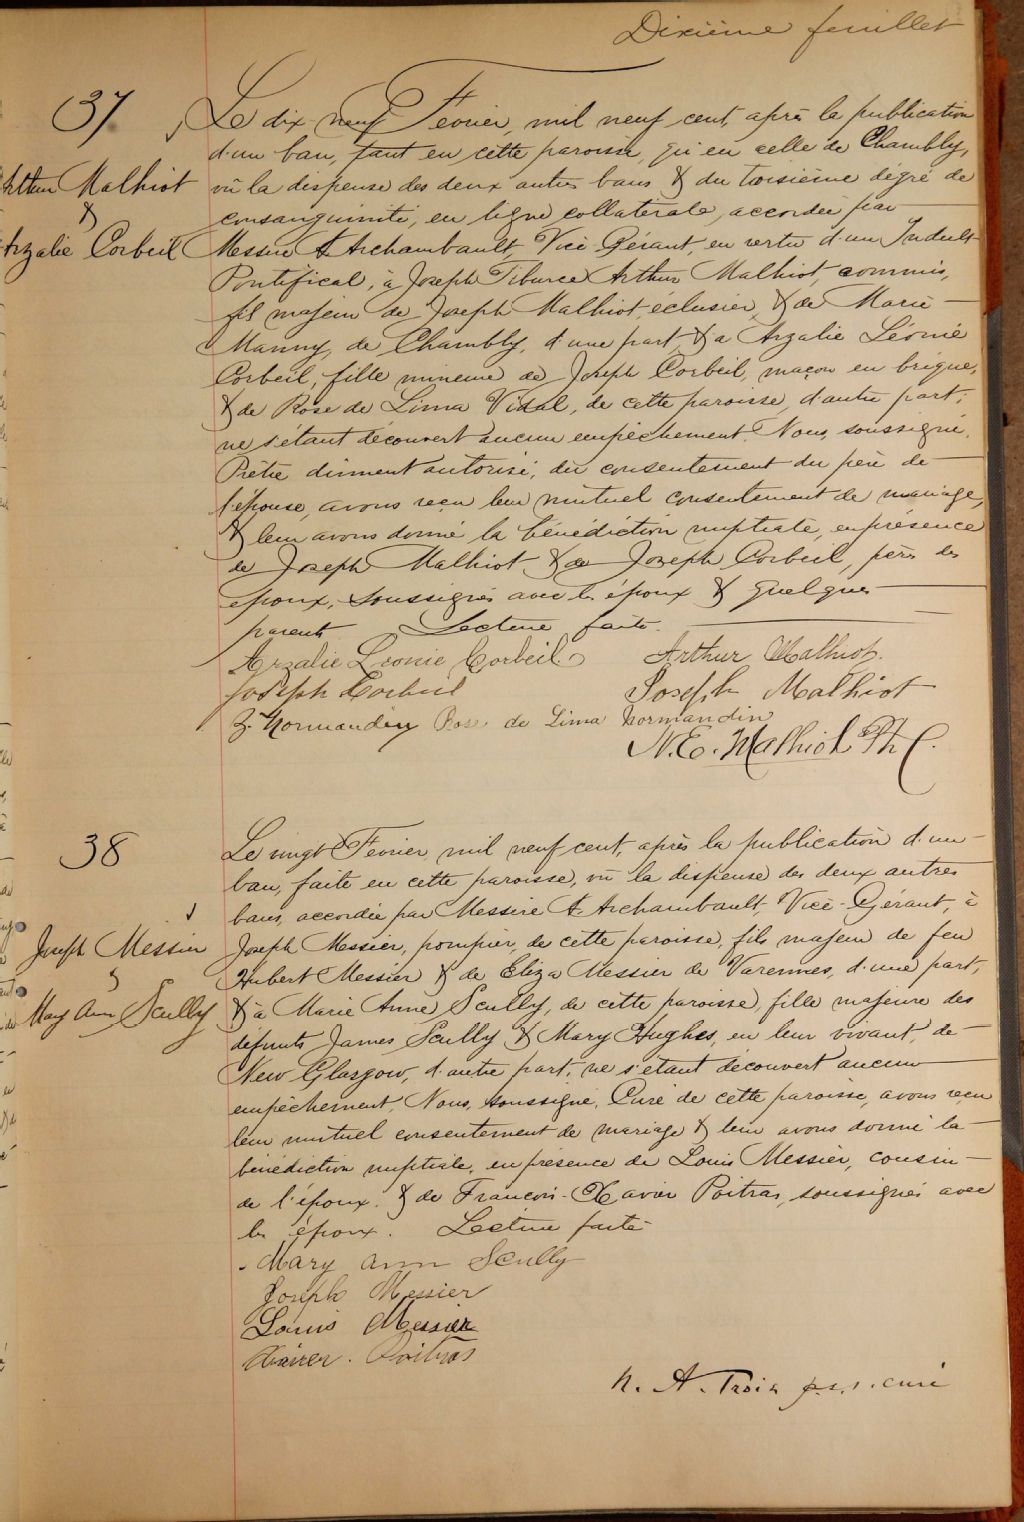 Dixième feuillet
37
Arthur Malhiot
&
Arzalie Corbeil
Le dix-neuf Février, mil neuf cent, après la publication
d'un ban, tant en cette paroisse, qu'en celle de Chambly,
vû la dispense des deux autres bans & du troisième dégré de
consanguinité, en ligne collatérale, accordée par
Messire A. Archambault, Vice-Gérant, en vertu d'un Indult
Pontifical, à Joseph Tiburce Arthur Malhiot, commis,
fils majeur de Joseph Malhiot, eclusier, & de Marie
Manny, de Chambly, d'une part, & à Arzalie Léonie
Corbeil, fille mineure de Joseph Corbeil, maçon en brique,
& de Rose de Lima Vidal, de cette paroisse, d'autre part;
ne s'étant découvert aucun empêchement. Nous, soussigné,
Prêtre dûment autorisé, du consentement du père de
l'épouse, avons reçu leur mutuel consentement de mariage,
& leur avons donné la bénédiction nuptiale, en présence
de Joseph Malhiot & de Joseph Corbeil, pères des
époux, soussignés avec les époux & quelques
parents. Lecture faite.
Arzalie Leonie Corbeil Arthur Malhiot.
Joseph Corbeil Joseph Malhiot
Z. Normandin Rose de Lima Normandin
N. E. Malhiot
38
Joseph Messier
&
Mary Ann Scully
Le vingt Février, mil neuf cent, après la publication d'un
ban, faite en cette paroisse, vû la dispense des deux autres
bans, accordée par Messire A. Archambault, Vice-Gérant, à
Joseph Messier, pompier, de cette paroisse, fils majeur de feu
Hubert Messier & de Eliza Messier de Varennes, d'une part,
& à Marie Anne Scully, de cette paroisse, fille majeure des
défunts James Scully & Mary Hughes, en leur vivant, de
New Glasgow, d'autre part; ne s'étant découvert aucun
empêchement, Nous, soussigné, Curé de cette paroisse, avons reçu
leur mutuel consentement de mariage & leur avons donné la
bénédiction nuptiale, en présence de Louis Messier, cousin
de l'époux, & de François-Xavier Poitras, soussignés avec
les époux. Lecture faite
Mary Ann Scully
Joseph Messier
Louis Messier
Xavier. Poitras
N. A. Troie p.s.s. curé